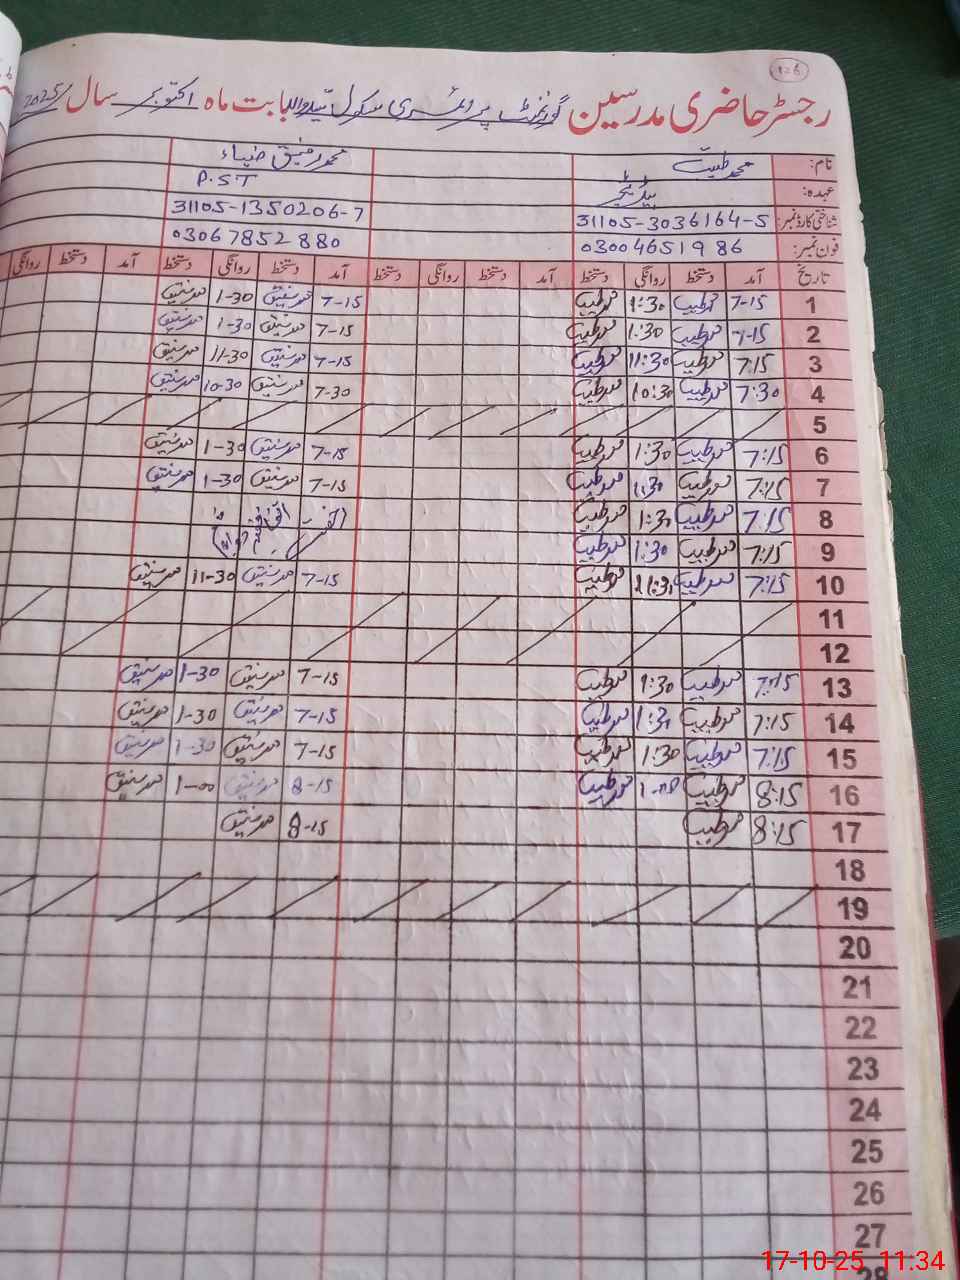 126
رجسٹر حاضری مدرسین گورنمنٹ پرائمری سکول بابت ماہ اکتوبر سال 2025
نام: محمد طیب محمد رفیق ضیاء
عہدہ: ہیڈ ٹیچر P.ST
شناختی کارڈ نمبر: 31105-3036164-5 31105-1350206-7
فون نمبر: 03004651986 03067852880
تاریخ آمد دستخط روانگی دستخط آمد دستخط روانگی دستخط آمد دستخط روانگی دستخط آمد دستخط روانگی
1 7-15 محمد طیب 1:30 محمد طیب 7-15 محمد رفیق 1-30 محمد رفیق
2 7-15 محمد طیب 1:30 محمد طیب 7-15 محمد رفیق 1-30 محمد رفیق
3 7:15 محمد طیب 11:30 محمد طیب 7-15 محمد رفیق 11-30 محمد رفیق
4 7:30 محمد طیب 10:30 محمد طیب 7-30 محمد رفیق 10-30 محمد رفیق
5
6 7:15 محمد طیب 1:30 محمد طیب 7-15 محمد رفیق 1-30 محمد رفیق
7 7:15 محمد طیب محمد طیب 7-15 محمد رفیق 1-30 محمد رفیق
8 7:15 محمد طیب 1:30 محمد طیب
9 7:15 محمد طیب 1:30 محمد طیب
10 7:15 محمد طیب 11:30 محمد طیب 7-15 محمد رفیق 11-30 محمد رفیق
11
12
13 7:15 محمد طیب 1:30 محمد طیب 7-15 محمد رفیق 1-30 محمد رفیق
14 7:15 محمد طیب 1:30 محمد طیب 7-15 محمد رفیق 1-30 محمد رفیق
15 7:15 محمد طیب 1:30 محمد طیب 7-15 محمد رفیق 1-30 محمد رفیق
16 8:15 محمد طیب 1-00 محمد طیب 8-15 محمد رفیق 1-00 محمد رفیق
17 8:15 محمد طیب 8-15 محمد رفیق
18
19
20
21
22
23
24
25
26
27
28
17-10-25 11:34